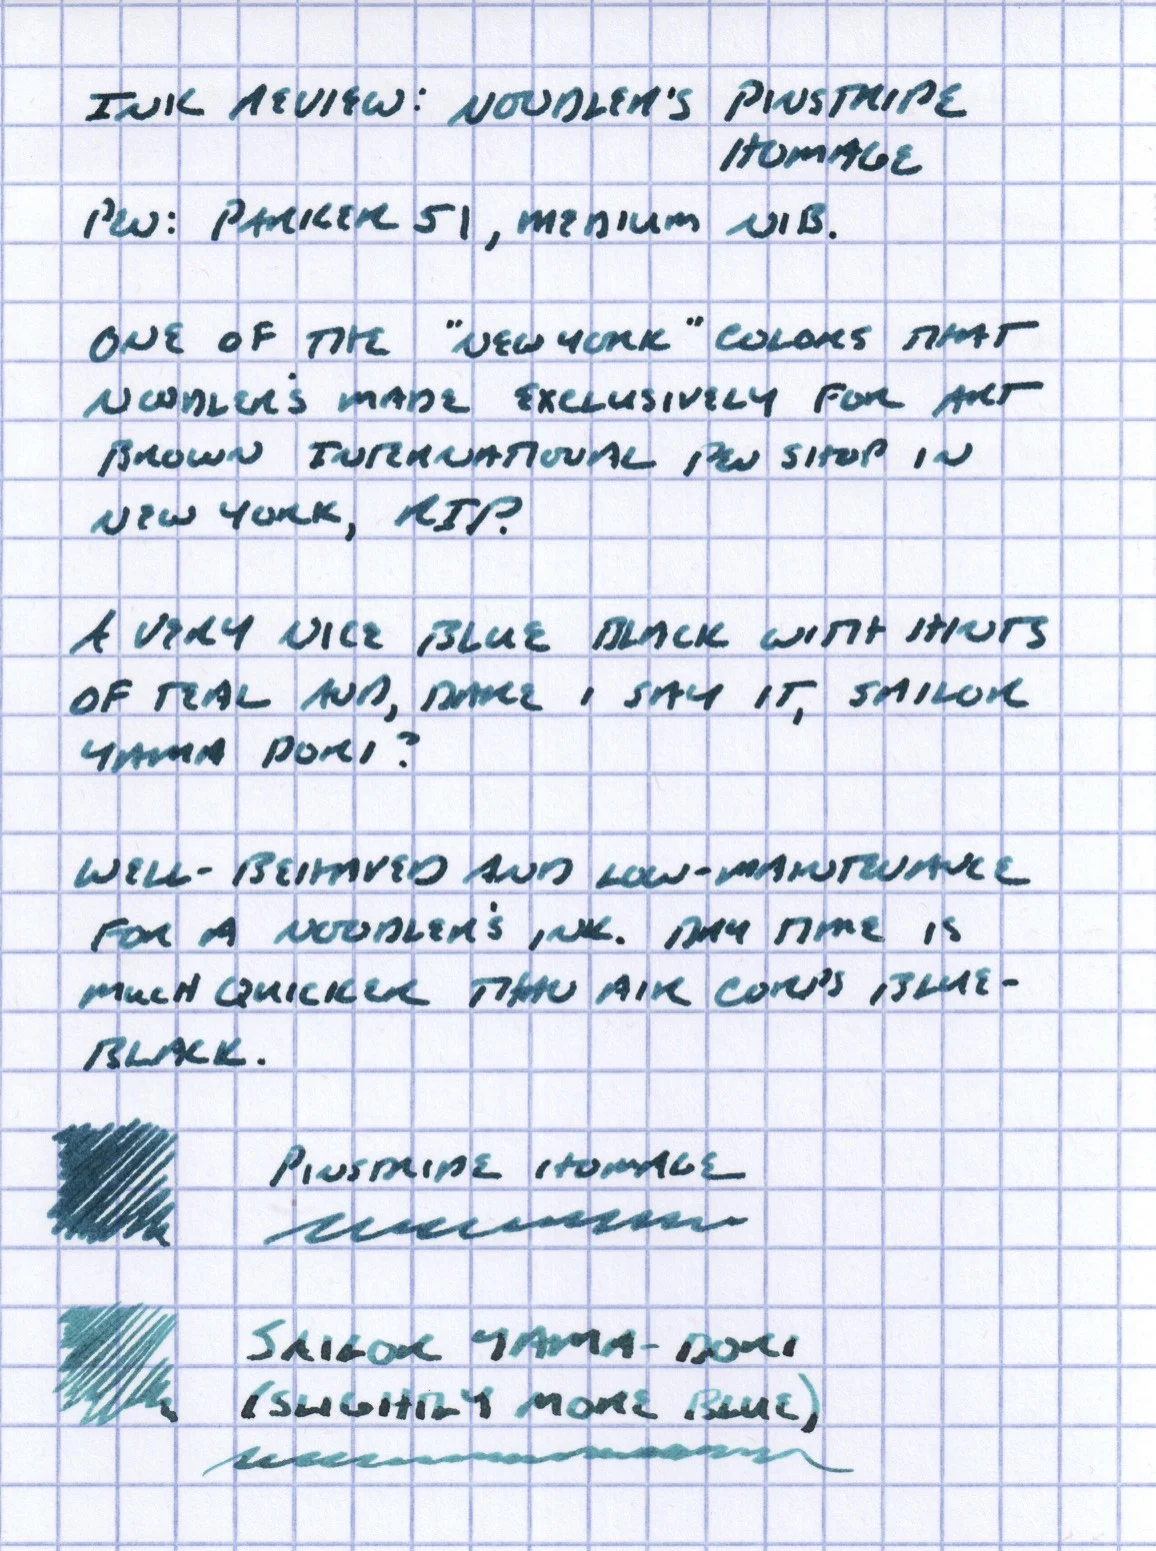 INK REVIEW: NOODLER'S PINSTRIPE
HOMAGE
PEN: PARKER 51, MEDIUM NIB.
ONE OF THE "NEW YORK" COLORS THAT
NOODLER'S MADE EXCLUSIVELY FOR ART
BROWN INTERNATIONAL PEN SHOP IN
NEW YORK, RIP.
A VERY NICE BLUE BLACK WITH HINTS
OF TEAL AND, DARE I SAY IT, SAILOR
YAMA DORI?
WELL-BEHAVED AND LOW-MAINTENANCE
FOR A NOODLER'S INK. DRY TIME IS
MUCH QUICKER THAN AIR CORPS BLUE-
BLACK.
PINSTRIPE HOMAGE
SAILOR YAMA-DORI
(SLIGHTLY MORE BLUE)